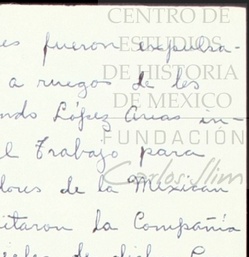 CENTRO DE
ESTUDIOS
DE HISTORIA
DE MEXICO
FUNDACIÓN
Carlos Slim
es fueron expulsa-
a ruegos de los
ndo López Arias in-
l Trabajo para
dores de la Mexican
itaron la Compañía